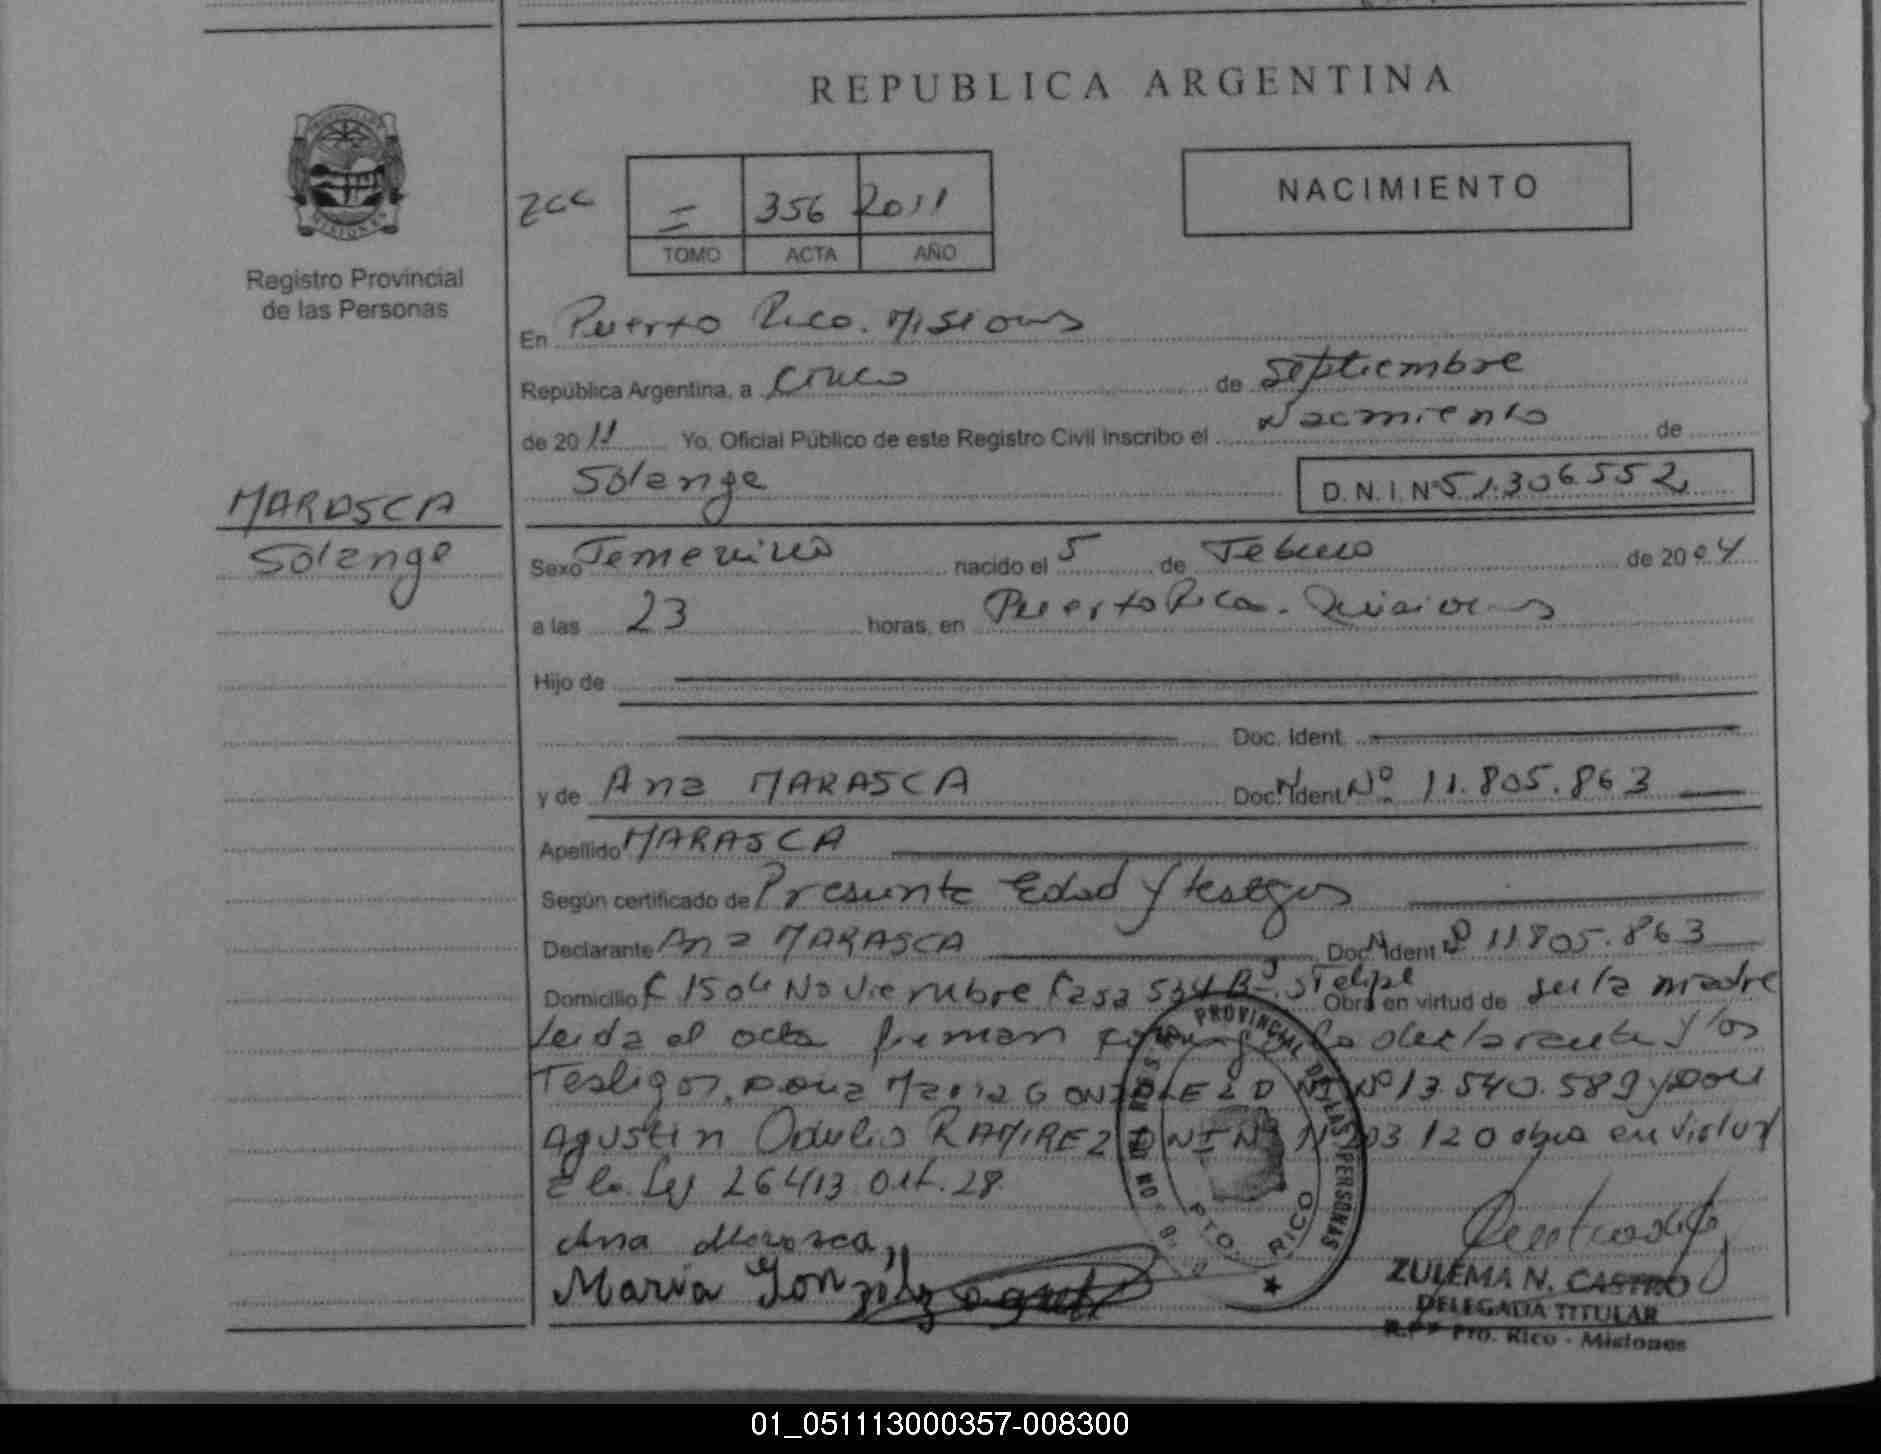 REPUBLICA ARGENTINA
MISIONES
Registro Provincial
de las Personas
356 2011
TOMO ACTA AÑO
NACIMIENTO
En Puerto Rico. Misiones
República Argentina, a cinco de Septiembre
de 2011 Yo, Oficial Público de este Registro Civil inscribo el Nacimiento de
Solange D.N.I. Nº 51.306.552
MARASCA
Solange
Sexo Femenino nacido el 5 de Febrero de 2004
a las 23 horas, en Puerto Rico. Misiones
Hijo de
Doc. Ident.
y de Ana MARASCA Doc. Ident. Nº 11.805.863
Apellido MARASCA
Según certificado de Presunta Edad y testigos
Declarante Ana MARASCA Doc. Ident Nº 11.805.863
Domicilio Noviembre Casa 534 Bº. S Felipe Obra en virtud de ser la madre
Leida el acta firman la declarante y los
Testigos, Doña Maria GONZALEZ DNI Nº 13.540.589 y Don
Agustin Odulio RAMIREZ DNI Nº 120 obra en virtud
la Ley 26413 Art. 28.
Ana Marasca
Maria Gonzalez
PROVINCIAL DE LAS PERSONAS
PTO. RICO
ZULEMA N. CASTRO
DELEGADA TITULAR
Pto. Rico - Misiones
01_051113000357-008300